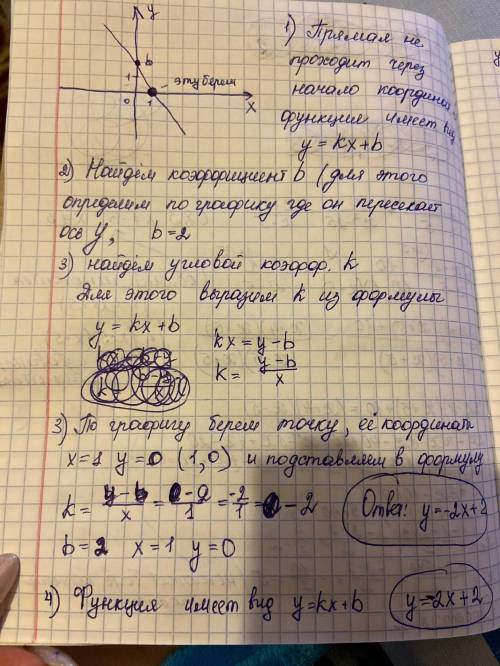 y
b
1
0
1
x
эту берем
1) Прямая не
проходит через
начало координат
функция имеет вид
y = kx+b
2) Найдём коэффициент b (для этого
определим по графику где он пересекает
ось y, b=2
3) найдём угловой коэфф. k
Для этого выразим k из формулы
y = kx+b
kx = y-b
k= y-b/x
3) По графику берем точку, её координаты
x=1 y=0 (1,0) и подставляем в формулу
k= y-b/x = 0-2/1 = -2/1 = -2
Ответ: y=-2x+2
b=2 x=1 y=0
4) Функция имеет вид y=kx+b
y=-2x+2